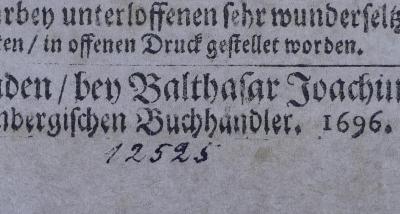 arbey unterloffenen sehr wunderseltz
ten / in offenen Druck gestellet worden.
den / bey Balthasar Joachim
nbergischen Buchhändler. 1696.
12525